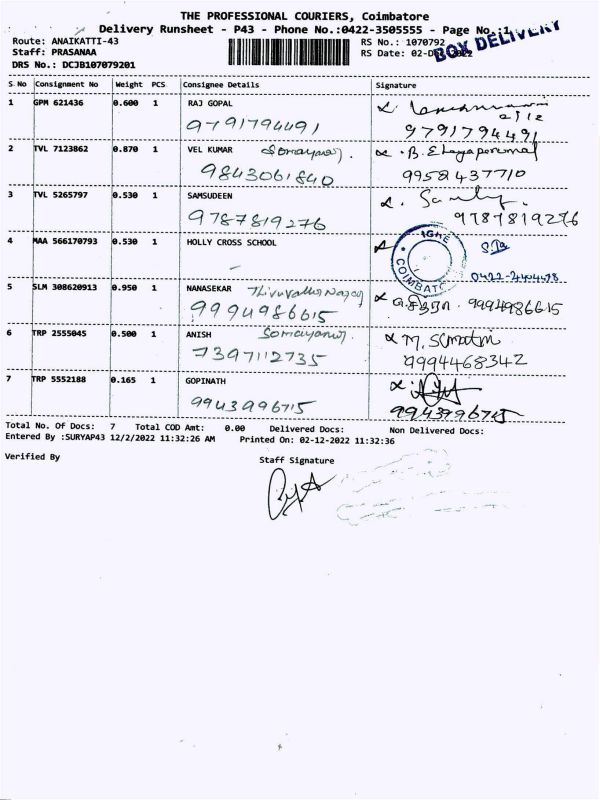 THE PROFESSIONAL COURIERS, Coimbatore
Delivery Runsheet - P43 - Phone No.:0422-3505555 - Page No.:1
BOX DELIVERY
Route: ANAIKATTI-43
RS No.: 1070792
Staff: PRASANAA
RS Date: 02-Dec-2022
DRS No.: DCJB107079201
S. No Consignment No Weight PCS Consignee Details Signature
1 GPM 621436 0.600 1 RAJ GOPAL
9791794491 9791794491
2 TVL 7123862 0.870 1 VEL KUMAR Somayanur. B. Elayaperumal
9843061840 9958437710
3 TVL 5265797 0.530 1 SAMSUDEEN
9787819276 9787819276
4 MAA 566170793 0.530 1 HOLLY CROSS SCHOOL
COIMBAT 0422-2404478
5 SLM 308620913 0.950 1 NANASEKAR Thiruvallur Nagar
9994986615 9994986615
6 TRP 2555045 0.500 1 ANISH Somayanur
7397112735 9994468342
7 TRP 5552188 0.165 1 GOPINATH
9943996715 9943996715
Total No. Of Docs: 7 Total COD Amt: 0.00 Delivered Docs: Non Delivered Docs:
Entered By :SURYAP43 12/2/2022 11:32:26 AM Printed On: 02-12-2022 11:32:36
Verified By Staff Signature